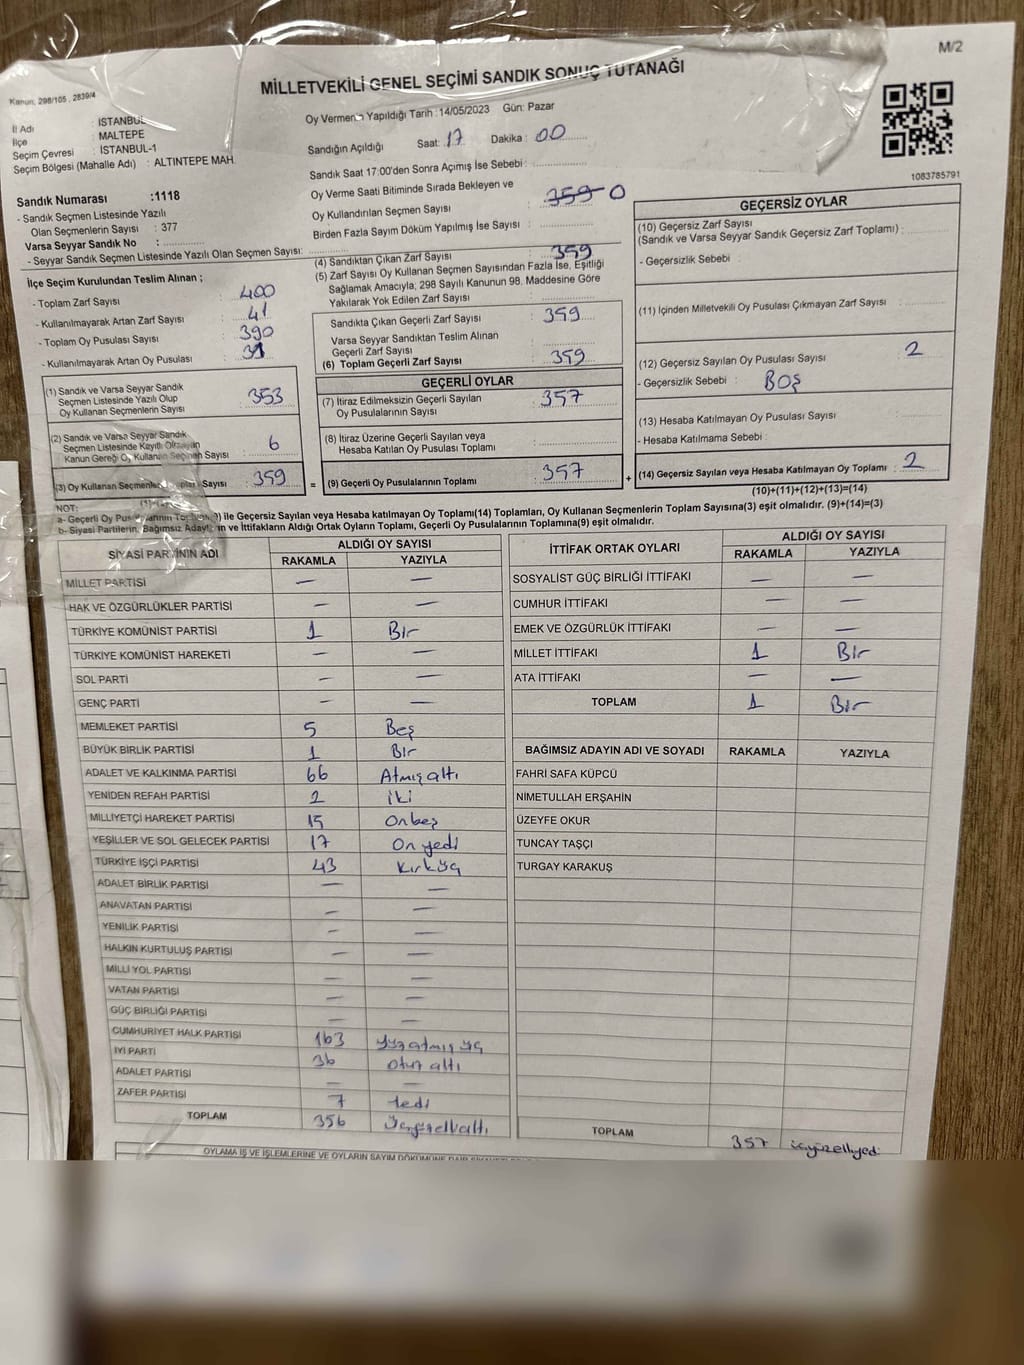 M/2
MİLLETVEKİLİ GENEL SEÇİMİ SANDIK SONUÇ TUTANAĞI
Kanun: 298/105, 2839/4
İl Adı : İSTANBUL
İlçe : MALTEPE
Seçim Çevresi : İSTANBUL-1
Seçim Bölgesi (Mahalle Adı) : ALTINTEPE MAH.
Sandık Numarası :1118
- Sandık Seçmen Listesinde Yazılı
Olan Seçmenlerin Sayısı : 377
Varsa Seyyar Sandık No :
- Seyyar Sandık Seçmen Listesinde Yazılı Olan Seçmen Sayısı:
Oy Vermenin Yapıldığı Tarih :14/05/2023 Gün: Pazar
Sandığın Açıldığı Saat: 17 Dakika : 00
Sandık Saat 17:00'den Sonra Açımış İse Sebebi :
Oy Verme Saati Bitiminde Sırada Bekleyen ve
Oy Kullandırılan Seçmen Sayısı : 359 0
Birden Fazla Sayım Döküm Yapılmış İse Sayısı :
1083785791
İlçe Seçim Kurulundan Teslim Alınan ;
- Toplam Zarf Sayısı : 400
- Kullanılmayarak Artan Zarf Sayısı : 41
- Toplam Oy Pusulası Sayısı : 390
- Kullanılmayarak Artan Oy Pusulası : 31
(1) Sandık ve Varsa Seyyar Sandık
Seçmen Listesinde Yazılı Olup
Oy Kullanan Seçmenlerin Sayısı : 353
(2) Sandık ve Varsa Seyyar Sandık
Seçmen Listesinde Kayıtlı Olmayan
Kanun Gereği Oy Kullanan Seçmenlerin Sayısı : 6
(3) Oy Kullanan Seçmenlerin Toplam Sayısı : 359
(4) Sandıktan Çıkan Zarf Sayısı : 359
(5) Zarf Sayısı Oy Kullanan Seçmen Sayısından Fazla İse, Eşitliği
Sağlamak Amacıyla; 298 Sayılı Kanunun 98. Maddesine Göre
Yakılarak Yok Edilen Zarf Sayısı :
Sandıkta Çıkan Geçerli Zarf Sayısı : 359
Varsa Seyyar Sandıktan Teslim Alınan
Geçerli Zarf Sayısı :
(6) Toplam Geçerli Zarf Sayısı : 359
GEÇERLİ OYLAR
(7) İtiraz Edilmeksizin Geçerli Sayılan
Oy Pusulalarının Sayısı : 357
(8) İtiraz Üzerine Geçerli Sayılan veya
Hesaba Katılan Oy Pusulası Toplamı :
= (9) Geçerli Oy Pusulalarının Toplamı : 357
GEÇERSİZ OYLAR
(10) Geçersiz Zarf Sayısı
(Sandık ve Varsa Seyyar Sandık Geçersiz Zarf Toplamı) :
- Geçersizlik Sebebi :
(11) İçinden Milletvekili Oy Pusulası Çıkmayan Zarf Sayısı :
(12) Geçersiz Sayılan Oy Pusulası Sayısı : 2
- Geçersizlik Sebebi : BOŞ
(13) Hesaba Katılmayan Oy Pusulası Sayısı :
- Hesaba Katılmama Sebebi :
+ (14) Geçersiz Sayılan veya Hesaba Katılmayan Oy Toplamı : 2
(10)+(11)+(12)+(13)=(14)
NOT:
ile Geçersiz Sayılan veya Hesaba katılmayan Oy Toplamı(14) Toplamları, Oy Kullanan Seçmenlerin Toplam Sayısına(3) eşit olmalıdır. (9)+(14)=(3)
b- Siyasi Partilerin, Bağımsız Adayların ve İttifakların Aldığı Ortak Oyların Toplamı, Geçerli Oy Pusulalarının Toplamına(9) eşit olmalıdır.
SİYASİ PARTİNİN ADI ALDIĞI OY SAYISI
RAKAMLA YAZIYLA
MİLLET PARTİSİ — —
HAK VE ÖZGÜRLÜKLER PARTİSİ — —
TÜRKİYE KOMÜNİST PARTİSİ 1 Bir
TÜRKİYE KOMÜNİST HAREKETİ — —
SOL PARTİ — —
GENÇ PARTİ — —
MEMLEKET PARTİSİ 5 Beş
BÜYÜK BİRLİK PARTİSİ 1 Bir
ADALET VE KALKINMA PARTİSİ 66 Atmışaltı
YENİDEN REFAH PARTİSİ 2 iki
MİLLİYETÇİ HAREKET PARTİSİ 15 Onbeş
YEŞİLLER VE SOL GELECEK PARTİSİ 17 On yedi
TÜRKİYE İŞÇİ PARTİSİ 43 Kırküç
ADALET BİRLİK PARTİSİ — —
ANAVATAN PARTİSİ — —
YENİLİK PARTİSİ — —
HALKIN KURTULUŞ PARTİSİ — —
MİLLİ YOL PARTİSİ — —
VATAN PARTİSİ — —
GÜÇ BİRLİĞİ PARTİSİ — —
CUMHURİYET HALK PARTİSİ 163 Yüzatmış üç
İYİ PARTİ 36 Otuz altı
ADALET PARTİSİ — —
ZAFER PARTİSİ 7 Yedi
TOPLAM 356 Üçyüzellialtı
İTTİFAK ORTAK OYLARI ALDIĞI OY SAYISI
RAKAMLA YAZIYLA
SOSYALİST GÜÇ BİRLİĞİ İTTİFAKI — —
CUMHUR İTTİFAKI — —
EMEK VE ÖZGÜRLÜK İTTİFAKI — —
MİLLET İTTİFAKI 1 Bir
ATA İTTİFAKI — —
TOPLAM 1 Bir
BAĞIMSIZ ADAYIN ADI VE SOYADI RAKAMLA YAZIYLA
FAHRİ SAFA KÜPCÜ
NİMETULLAH ERŞAHİN
ÜZEYFE OKUR
TUNCAY TAŞÇI
TURGAY KARAKUŞ
TOPLAM 357 üçyüzelliyedi
OYLAMA İŞ VE İŞLEMLERİNE VE OYLARIN SAYIM DÖKÜMÜNE DAİR